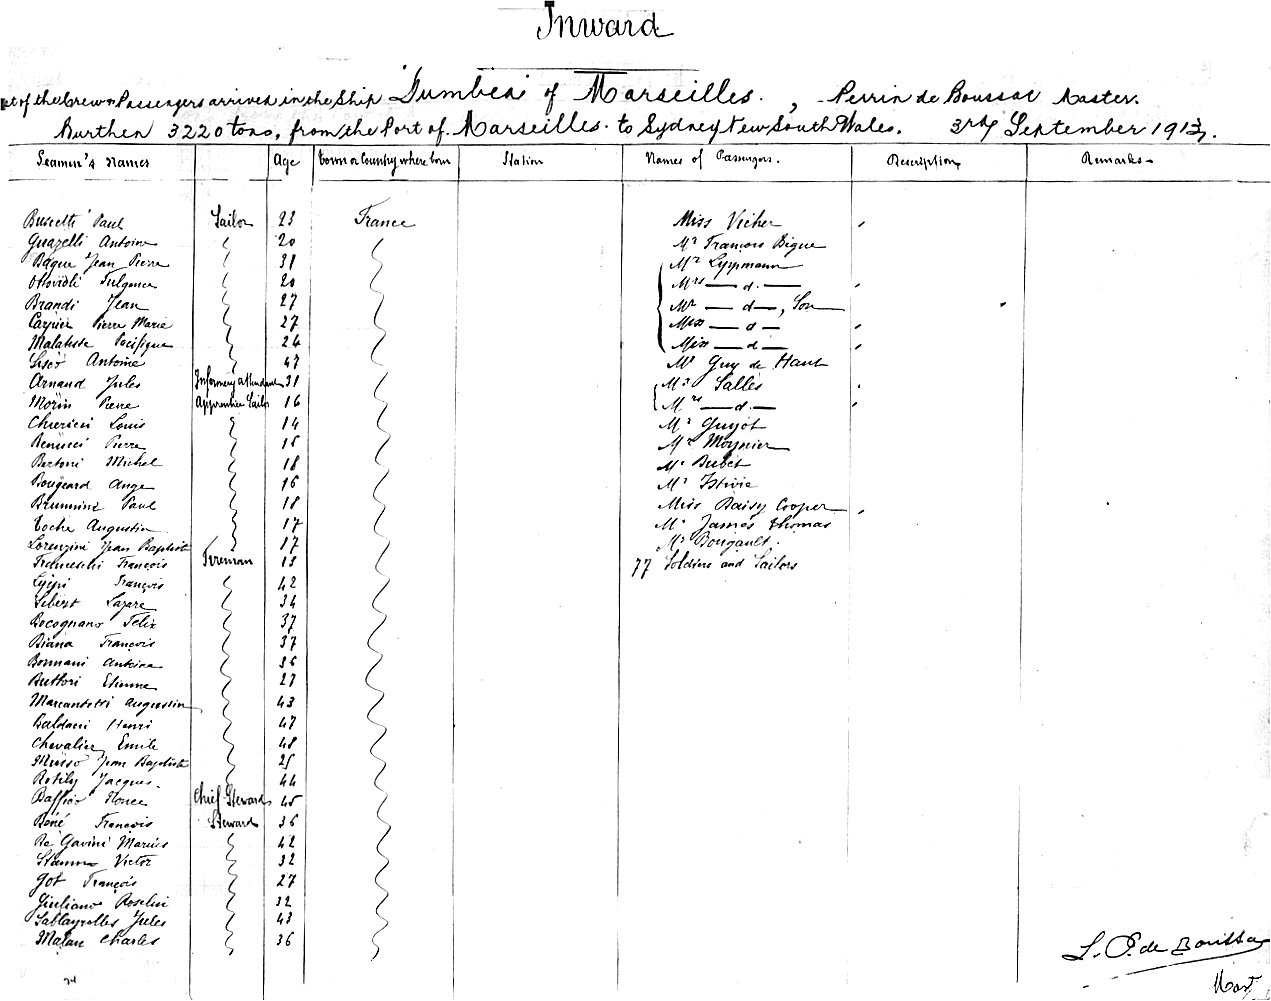 Inward
of the Crew & Passengers arrived in the Ship "Dumbea" of Marseilles. , Perrin de Boussac Master.
Burthen 3220 tons, from the Port of Marseilles. to Sydney New South Wales. 3rd September 1913.
Seamen's Names Age Town or Country where born Station Names of Passengers. Description Remarks
Buscetti Paul Sailor 23 France Miss Vicher
Guazelli Antoine 20 Mr François Bigue
Bague Jean Pierre 31 Mr Lyppmann
Ottovioli Fulgence 20 Mrs — d. —
Brandi Jean 27 Mr — d —, Son
Carrier Pierre Marie 27 Miss — d —
Malateste Pacifique 24 Miss — d —
Sisco Antoine 47 Mr Guy de Haut
Arnaud Jules Infirmery attendant 31 Mr Salles
Morin Pierre Apprentice Sailor 16 Mrs — d. —
Chierici Louis 14 Mr Guyot
Renucci Pierre 15 Mr Moynier
Bertoni Michel 18 Mr Bubet
Bougeard Ange 16 Mr Istivie
Brunini Paul 18 Miss Daisy Cooper
Toche Augustin 17 Mr James Thomas
Lorenzini Jean Baptist 17 Mr Bougault.
Franceschi François Fireman 13 77 Soldiers and Sailors
Lippi François 42
Libert Lazare 34
Bocognano Felix 37
Biana François 37
Bonnani Antoine 36
Buttori Etienne 27
Marcantetti Augustin 43
Baldacci Henri 47
Chevalier Emile 48
Murso Jean Baptiste 25
Rotily Jacques. 44
Baffico Honce Chief Steward 45
Béné François Steward 36
Re Gavini Marius 42
Stamm Victor 32
Got François 27
Giuliano Roselin 32
Sablayrolles Jules 43
Matau Charles 36
L. P. de Boussac
Mast